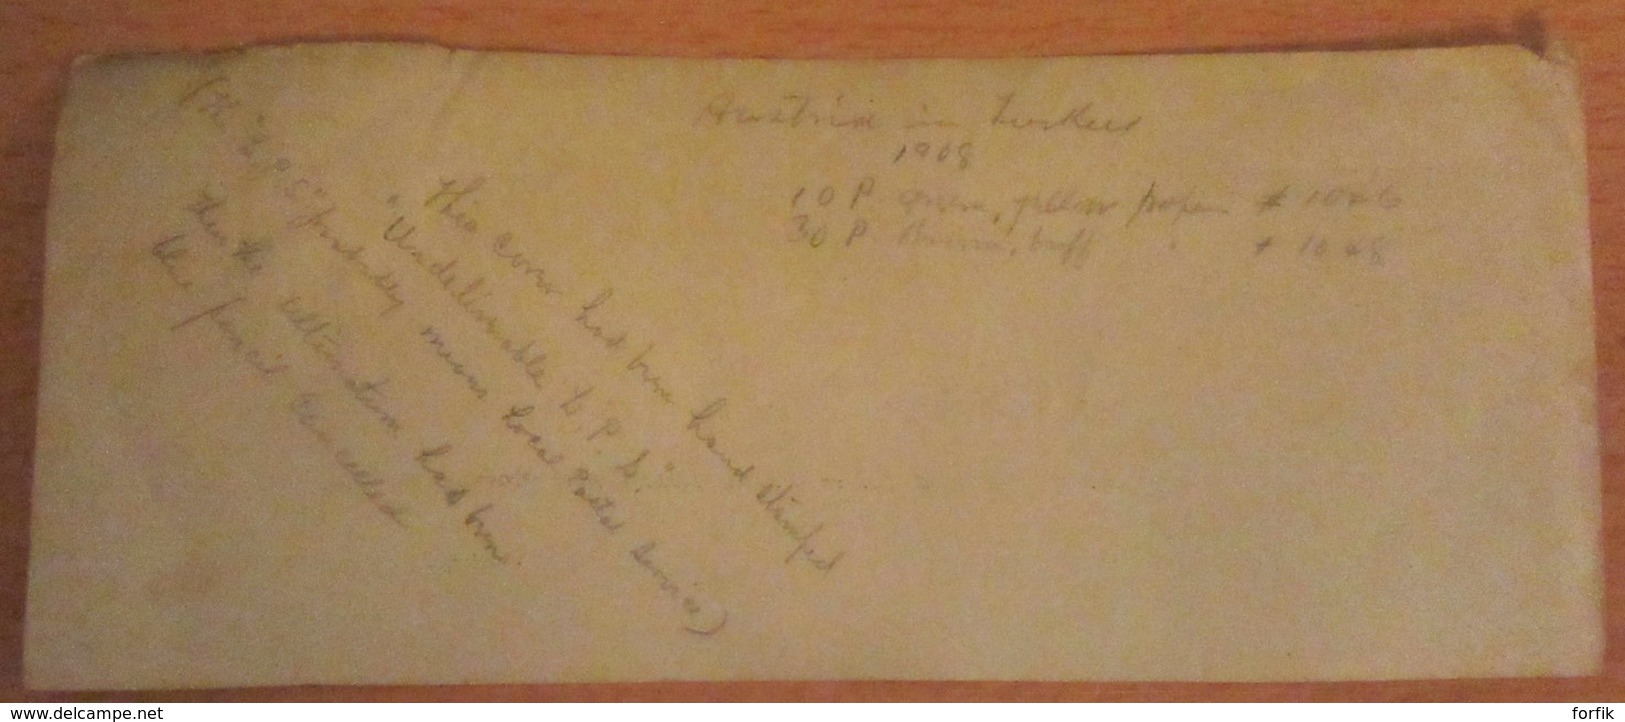 Austria in Turkey
1908
10 P green, yellow paper # 1046
30 P. brown, buff " # 1048
This cover had been hand stamped
"Undeliverable L. P. S."
(the "L. P. S" probably means Local Postal Service)
then the alteration had been
blue pencil cancelled
www.delcampe.net
forfik